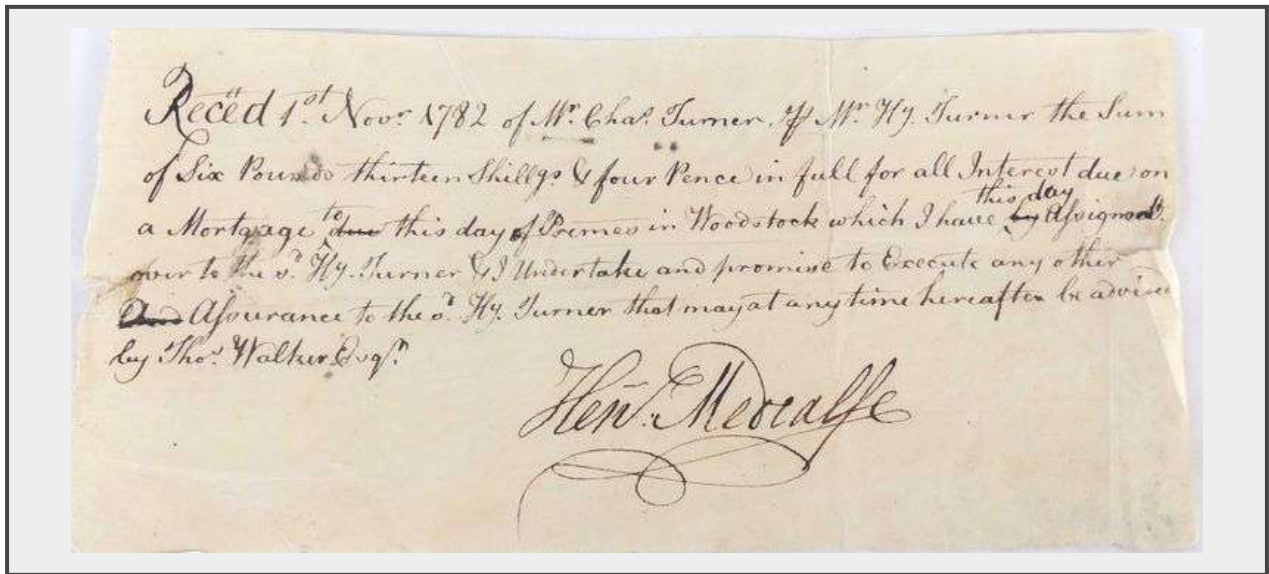 Reced 1st Novr 1782 of Mr. Chas. Turner, pp Mr. Hy. Turner the Sum
of Six Pounds thirteen Shillgs & four Pence in full for all Interest due on
this day
a Mortgage to due this day of Premes in Woodstock which I have by Assignd
over to the sd. Hy. Turner & I Undertake and promise to Execute any other
Assurance to the sd. Hy. Turner that may at any time hereafter be advised
by Thos. Walker Esqr.
Heny. Metcalfe